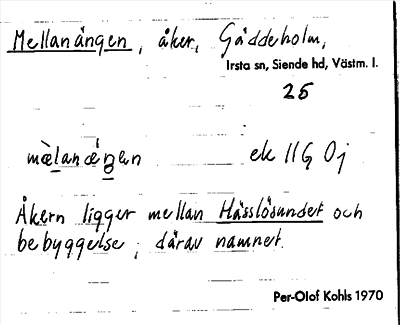 Mellanängen, åker, Gäddeholm,
Irsta sn, Siende hd, Västm. l.
25
mæ̀lanǽŋen ek IIG Oj
Åkern ligger mellan Hässlösundet och
bebyggelse, därav namnet.
Per-Olof Kohls 1970